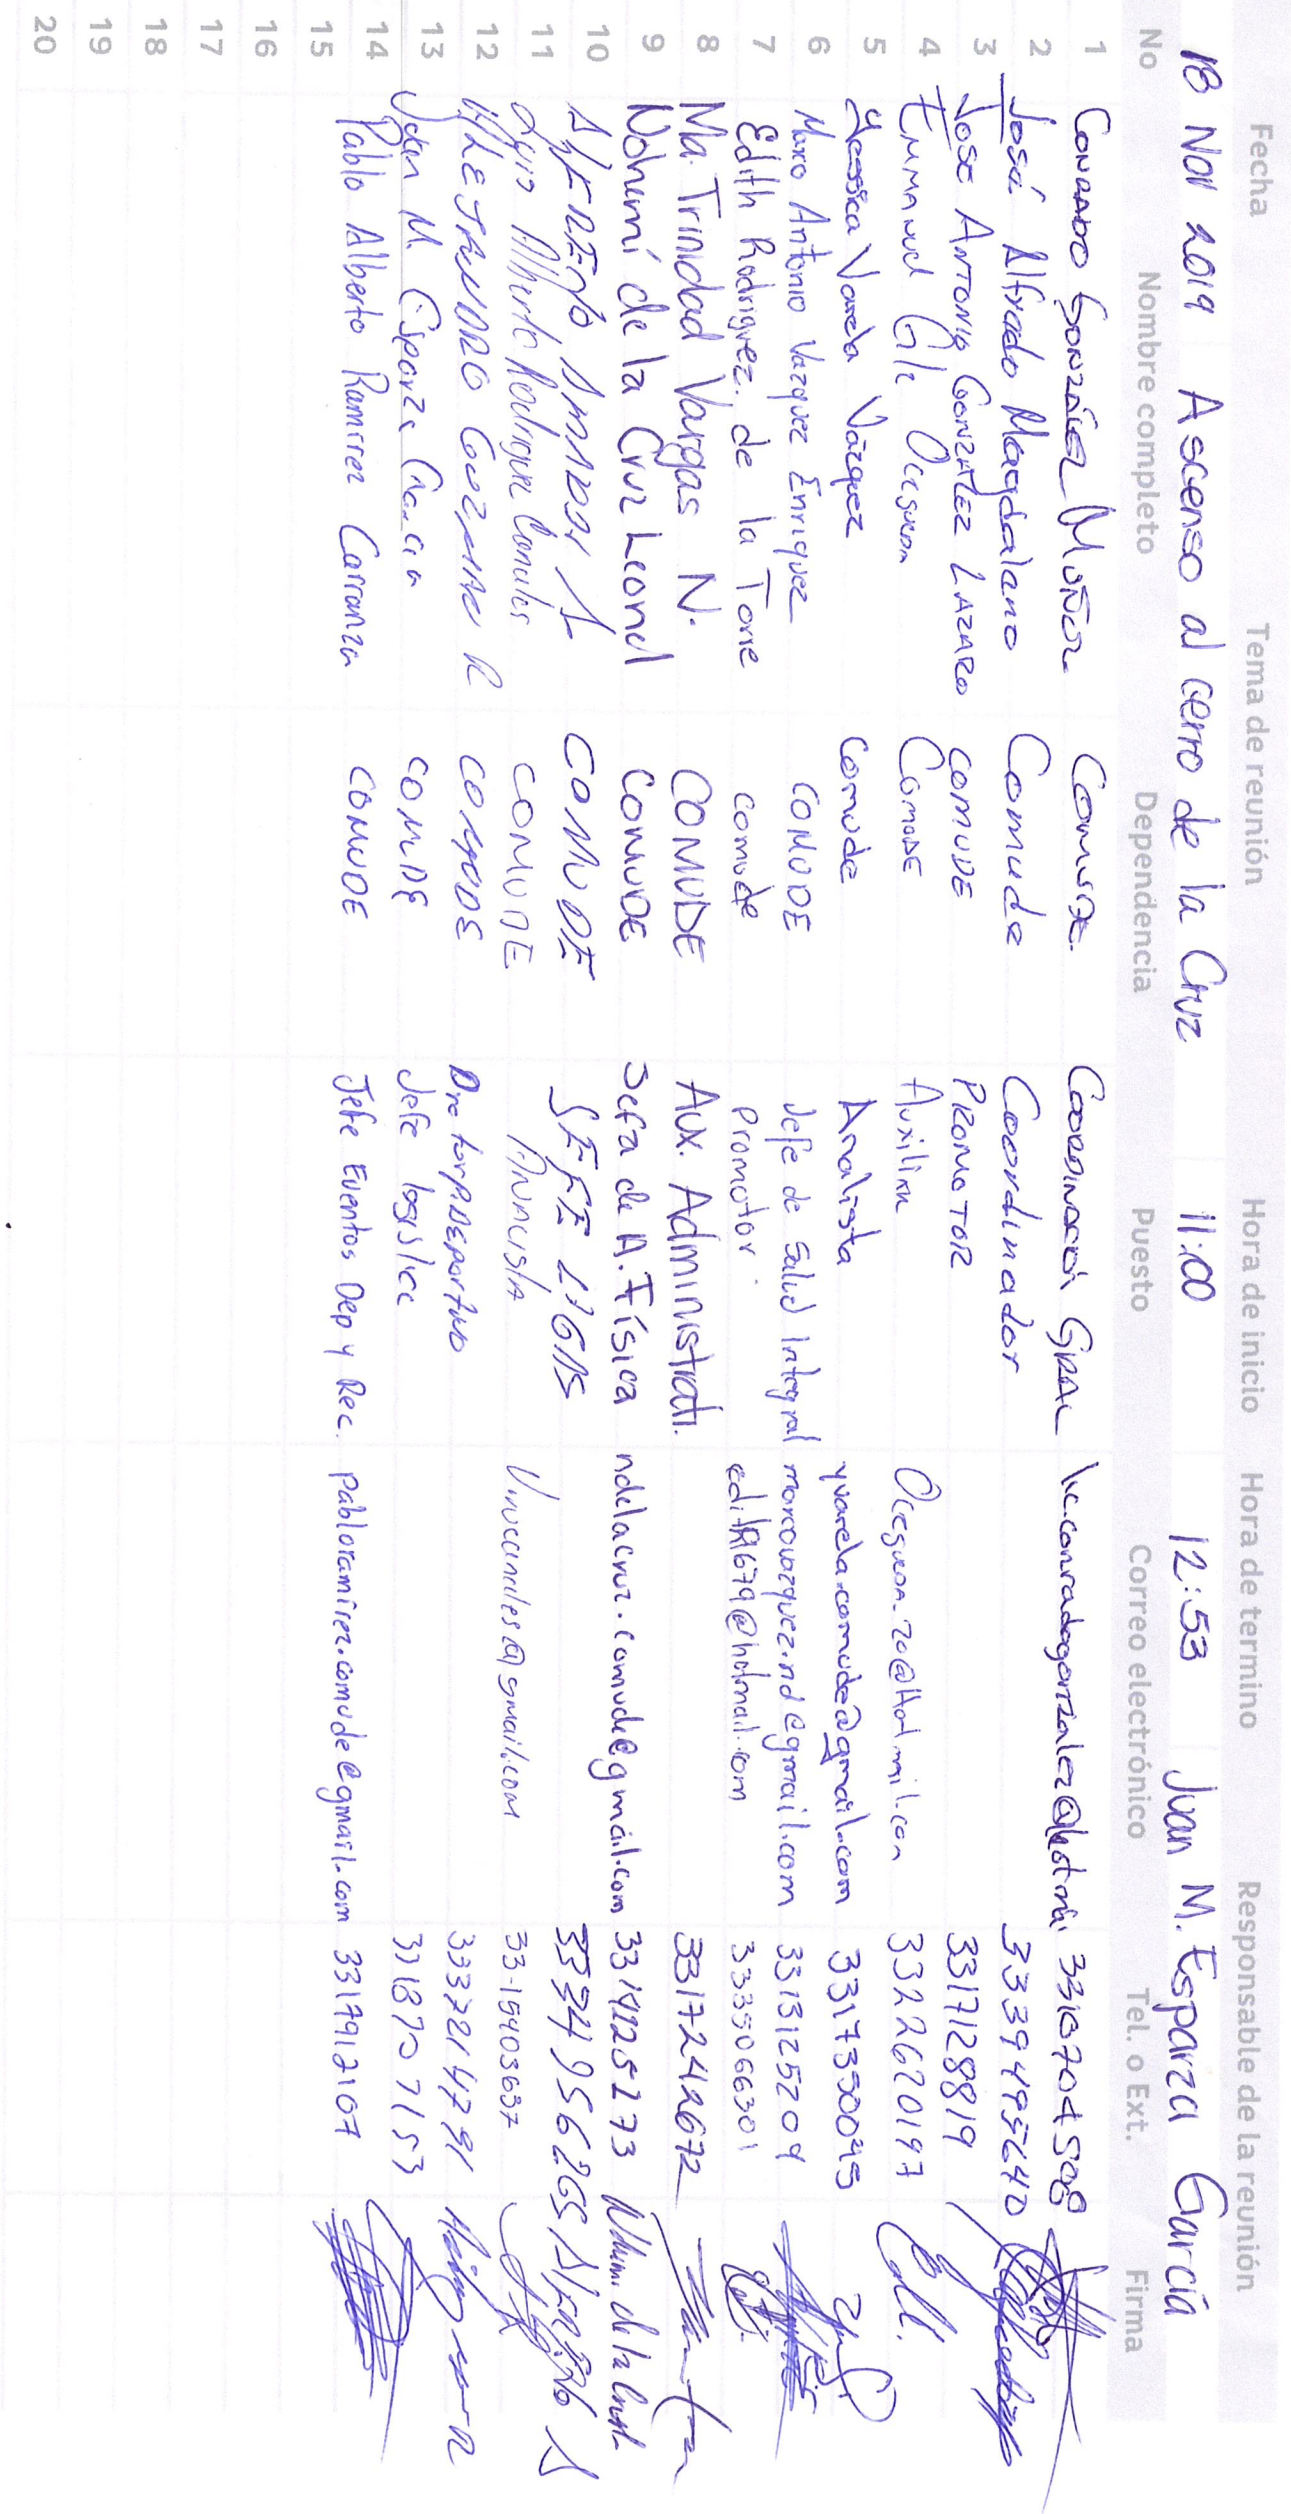 Fecha Tema de reunión Hora de inicio Hora de termino Responsable de la reunión
18 Nov 2019 Ascenso al cerro de la Cruz 11:00 12:53 Juan M. Esparza García
No Nombre completo Dependencia Puesto Correo electrónico Tel. o Ext. Firma
1 Conrado González Comude Coordinador Gral
2 José Alfredo Magdaleno Comude Coordinador 3339495640
3 JOSE ANTONIO GONZALEZ LAZARO COMUDE PROMOTOR 3317128819
4 Emmanuel Comude Auxiliar 3322620197
5 Yessica Varela Vázquez Comude Analista yvarela.comude@gmail.com
6 Marco Antonio Vazquez Enriquez COMUDE Jefe de Salud Integral marcovazquez.nd@gmail.com 3313125204
7 Edith Rodriguez de la Torre comude Promotor edith1679@hotmail.com 3335066301
8 Ma. Trinidad Vargas N. COMUDE Aux. Administrati. 3317242672
9 Nohemí de la Cruz Leonel COMUDE Jefa de A. Física ndelacruz.comude@gmail.com 3314125273 Nohemi de la Cruz L.
10 COMUDE JEFE LIGAS
11 Alberto Rodriguez Canales COMUDE 33-15403637
12 ALEJANDRO GUZMAN R COMUDE Director Deportivo 3337214791
13 Juan M. Esparza Garcia COMUDE Jefe logistica 3318707153
14 Pablo Alberto Ramirez Carranza COMUDE Jefe Eventos Dep y Rec. pabloramirez.comude@gmail.com 3317912107
15
16
17
18
19
20